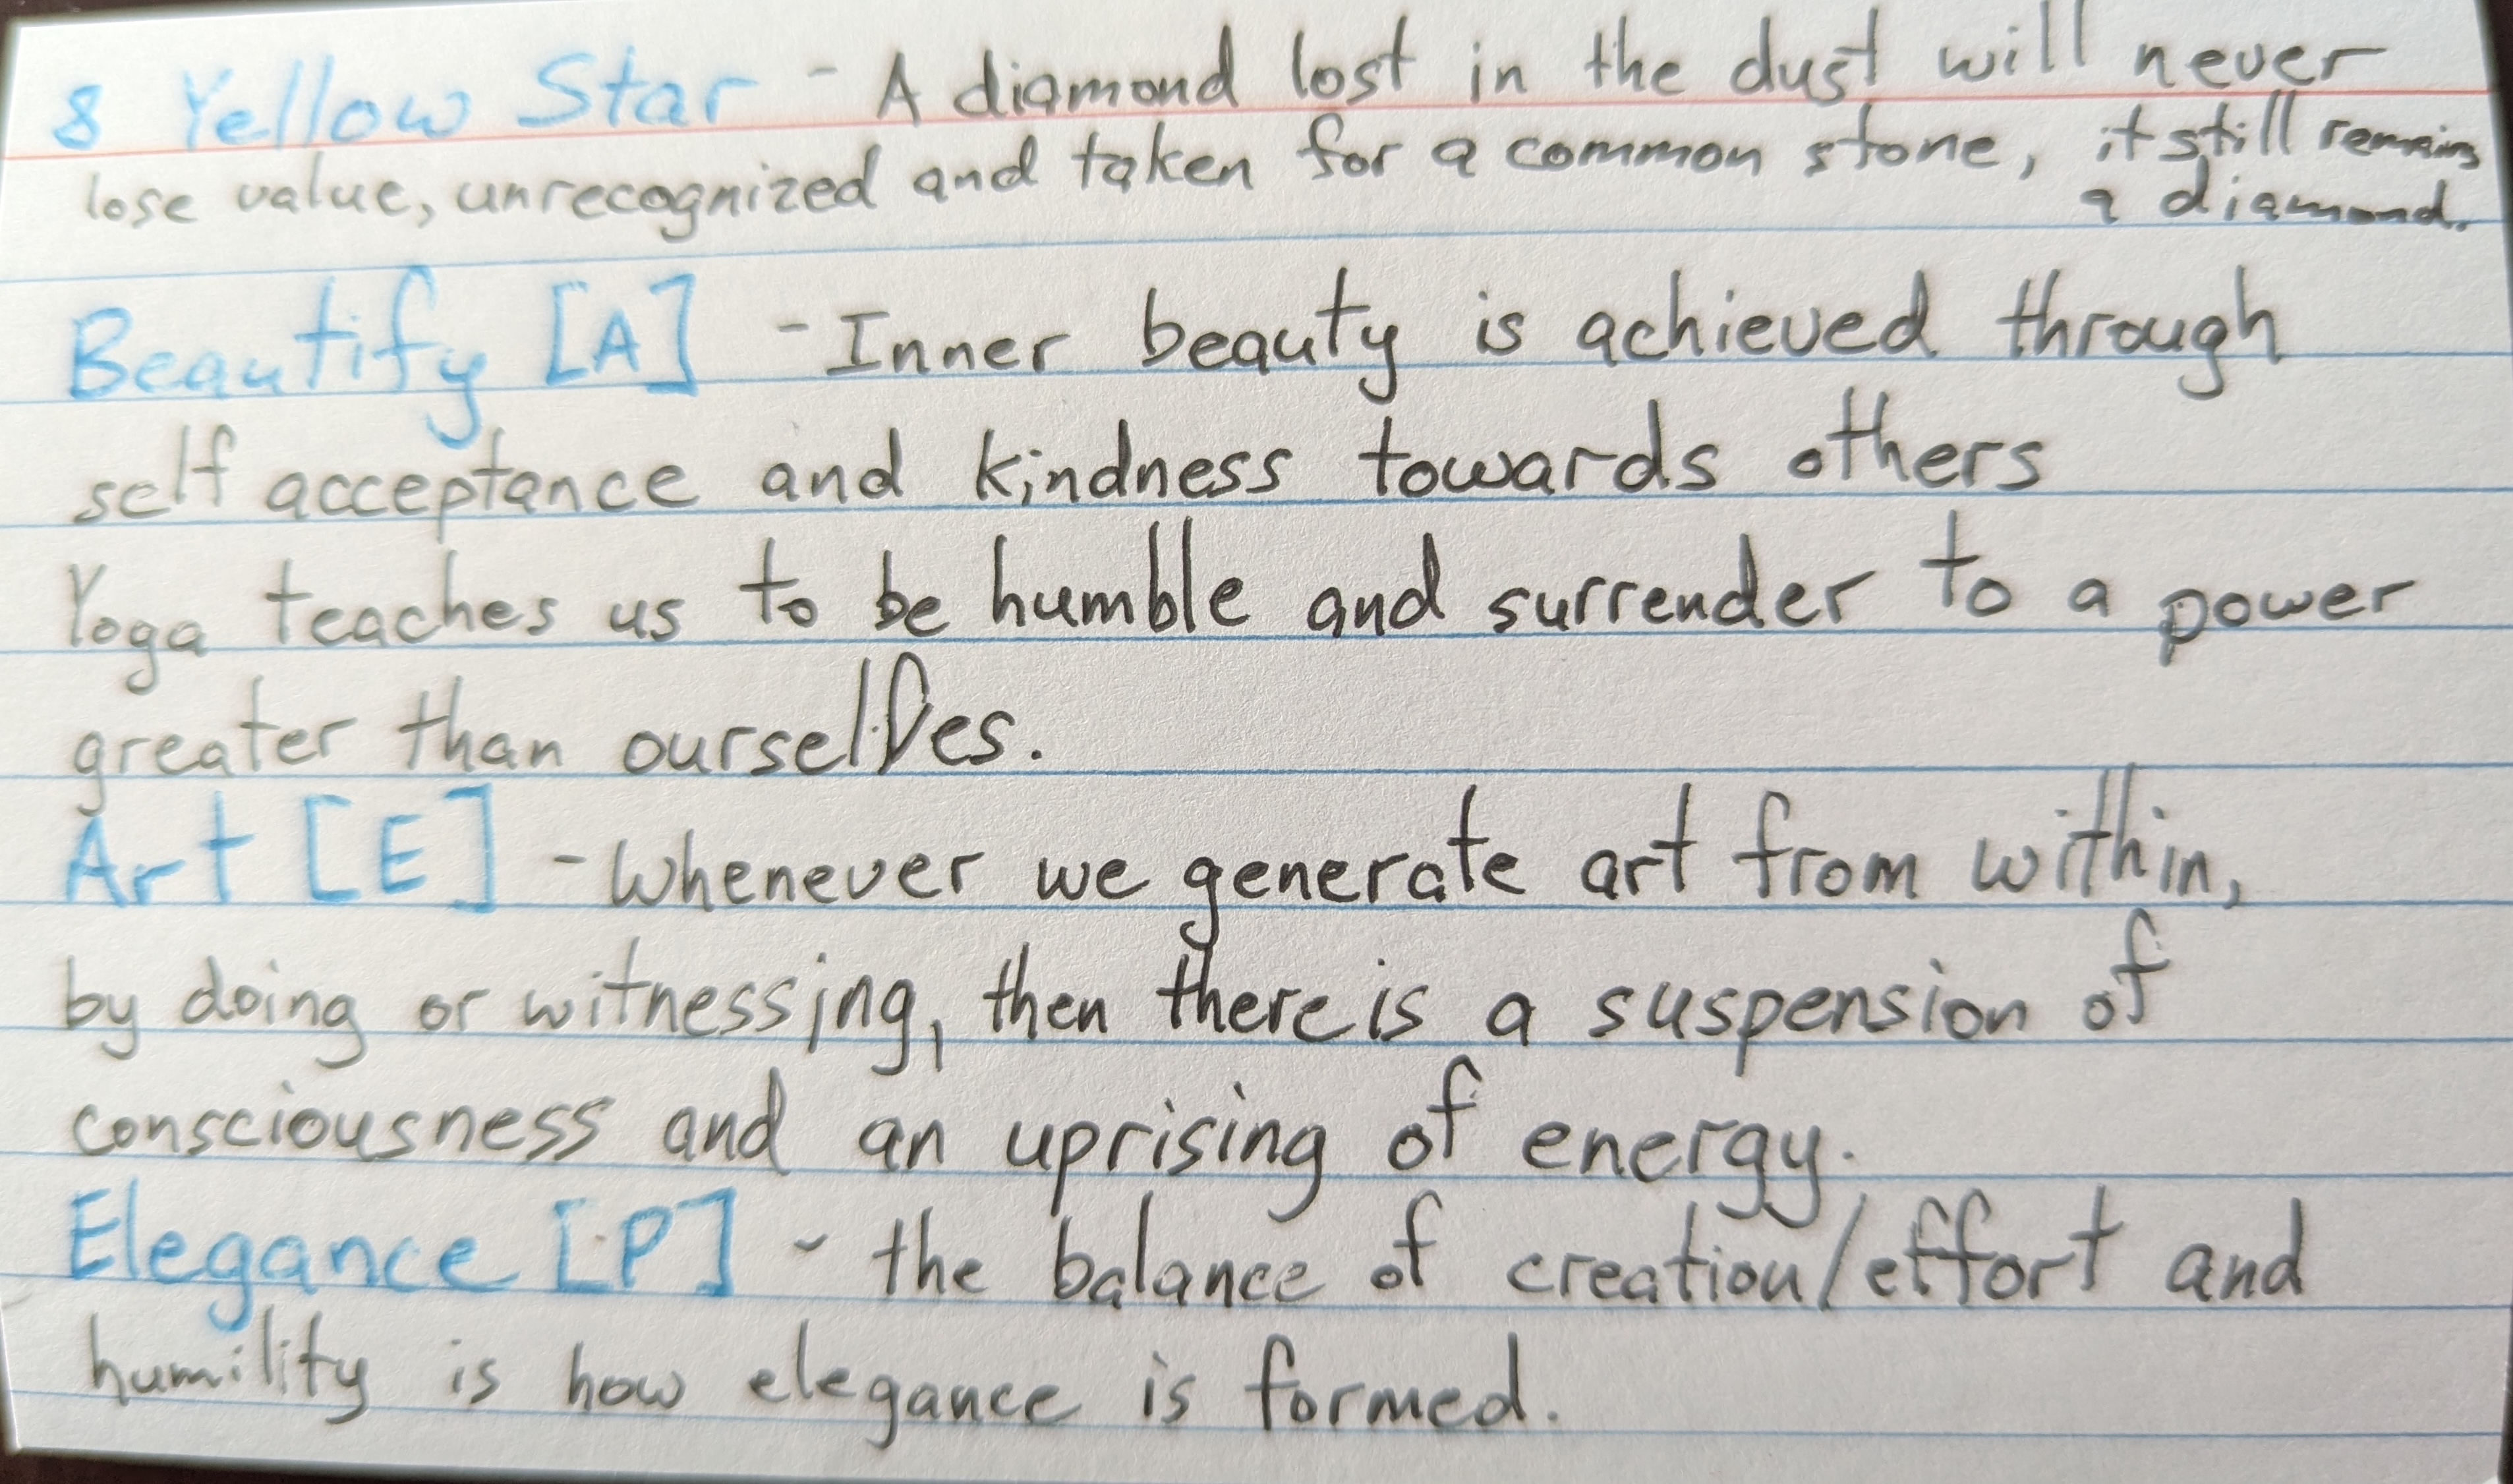 8 Yellow Star - A diamond lost in the dust will never
lose value, unrecognized and taken for a common stone, it still remains
a diamond.
Beautify [A] - Inner beauty is achieved through
self acceptance and kindness towards others
Yoga teaches us to be humble and surrender to a power
greater than ourselves.
Art [E] - Whenever we generate art from within,
by doing or witnessing, then there is a suspension of
consciousness and an uprising of energy.
Elegance [P] - the balance of creation/effort and
humility is how elegance is formed.